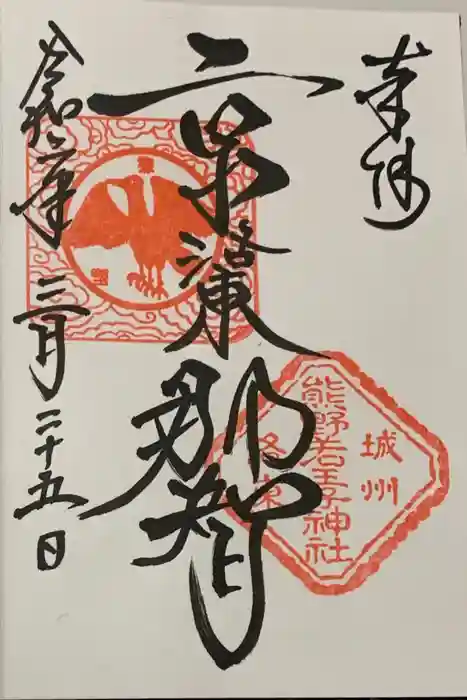 奉拝
京洛東那智
令和六年三月二十五日
城州
熊野若王子神社
洛東